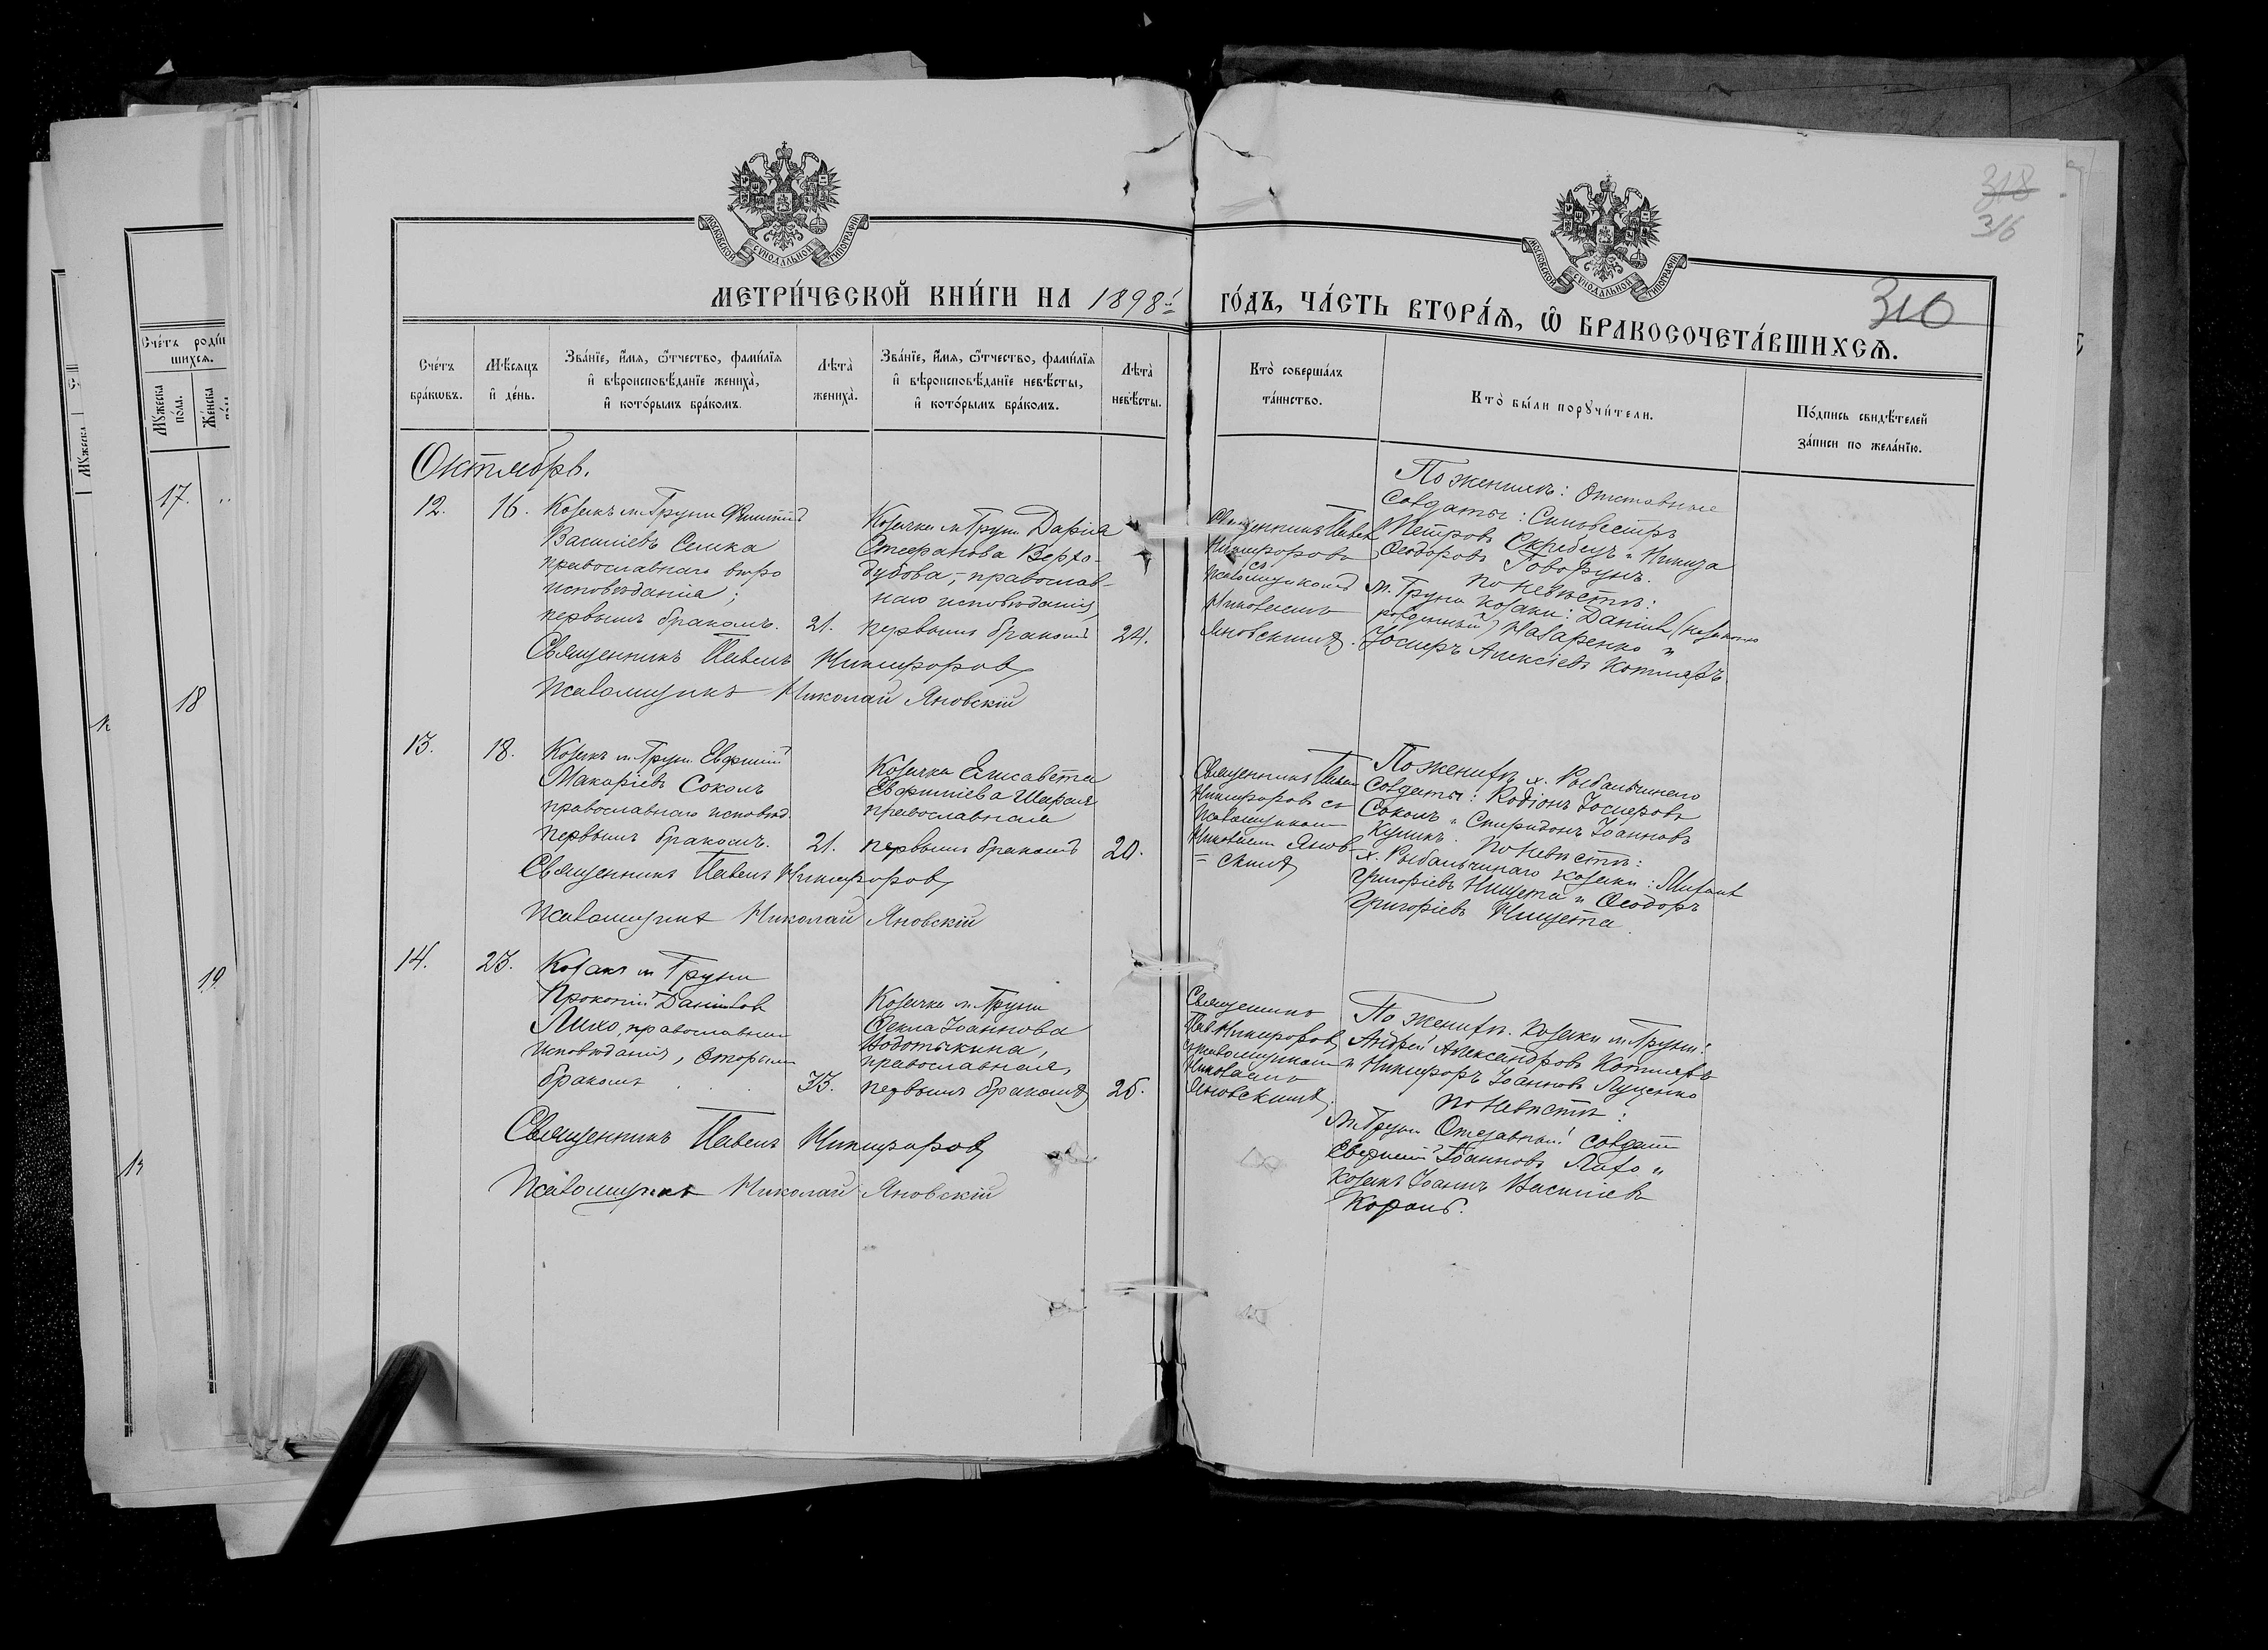 МОСКОВСКОЙ СѴНОДАЛЬНОЙ ТИПОГРАФІИ
МОСКОВСКОЙ СѴНОДАЛЬНОЙ ТИПОГРАФІИ
318
316
310
МЕТРИ́ЧЕСКОЙ КНИ́ГИ НА 1898й
ГО́ДЪ, ЧА́СТЬ ВТОРА́Ѧ, Ѽ БРАКОСОЧЕТА́ВШИХСѦ.
Сче́тъ
бра́кѡвъ.
Мѣ́сяцъ
и҆ де́нь.
Зва́нїе, и҆́мя, ѻ҆́тчество, фами́лїя
и҆ вѣроисповѣ́данїе жениха̀,
и҆ кото́рымъ бра́комъ.
Лѣта̀
жениха̀.
Зва́нїе, и҆́мя, ѻ҆́тчество, фами́лїя
и҆ вѣроисповѣ́данїе невѣ́сты,
и҆ кото́рымъ бра́комъ.
Лѣта̀
невѣ́сты.
Кто̀ соверша́лъ
та́инство.
Кто̀ бы́ли порꙋчи́тели.
По́дпись свидѣ́телей
за́писи по жела́нїю.
Октябрь.
12.
16.
Козакъ м. Груни Филиппъ
Василіевъ Сеика
православнаго вѣро
исповѣданія;
первымъ бракомъ.
21.
Козачка м. Груни Дарія
Стефанова Верхо-
дубова, православ-
наго исповѣданія,
первымъ бракомъ
24.
Священникъ Павелъ
Никифоровъ
съ
псаломщикомъ
Николаемъ
Яновскимъ.
По жениху: Отставные
солдаты: Сильвестръ
Петровъ Скрибецъ и Никита
Ѳеодоровъ Говорунъ.
По невѣстѣ:
м. Груни козаки: Даніилъ (незаконно
рожденный) Назаренко и
Іосифъ Алексіевъ Котляръ
Священникъ Павелъ Никифоровъ
Псаломщикъ Николай Яновскій
13.
18.
Козакъ м. Груни Евфимій
Макаріевъ Соколъ
православнаго исповѣд.
первымъ бракомъ.
21.
Козачка Елисавета
Евфиміева Шарая
православная
первымъ бракомъ
20.
Священникъ Павелъ
Никифоровъ съ
псаломщикомъ
Николаемъ Янов-
=скимъ
По жениху х. Рыбальчинаго
солдаты: Родіонъ Іосифовъ
Соколъ и Спиридонъ Іоанновъ
Куликъ. По невѣстѣ:
х. Рыбальчинаго козаки: Михаилъ
Григоріевъ Нищета и Ѳеодоръ
Григоріевъ Нищета.
Священникъ Павелъ Никифоровъ
Псаломщикъ Николай Яновскій
14.
23.
Козакъ м. Груни
Прокопій Даніиловъ
Лихо, православнаго
исповѣданія, вторымъ
бракомъ
33.
Козачка м. Груни
Ѳекла Іоаннова
Водотыкина,
православная,
первымъ бракомъ
25.
Священникъ
Пав. Никифоровъ
съ псаломщикомъ
Николаемъ
Яновскимъ.
По жениху. Козаки м. Груни:
Андрей Александровъ Котляръ
и Никифоръ Іоанновъ Луценко
По невѣстѣ:
м. Груни Отставной солдатъ
Евфимій Іоанновъ Лахо и
козакъ Іоаннъ Василіевъ
Корань.
Священникъ Павелъ Никифоровъ
Псаломщикъ Николай Яновскій
Сче́тъ роди́в
шихся.
Мꙋ́жеска
по́ла.
Же́нска
17.
18
19